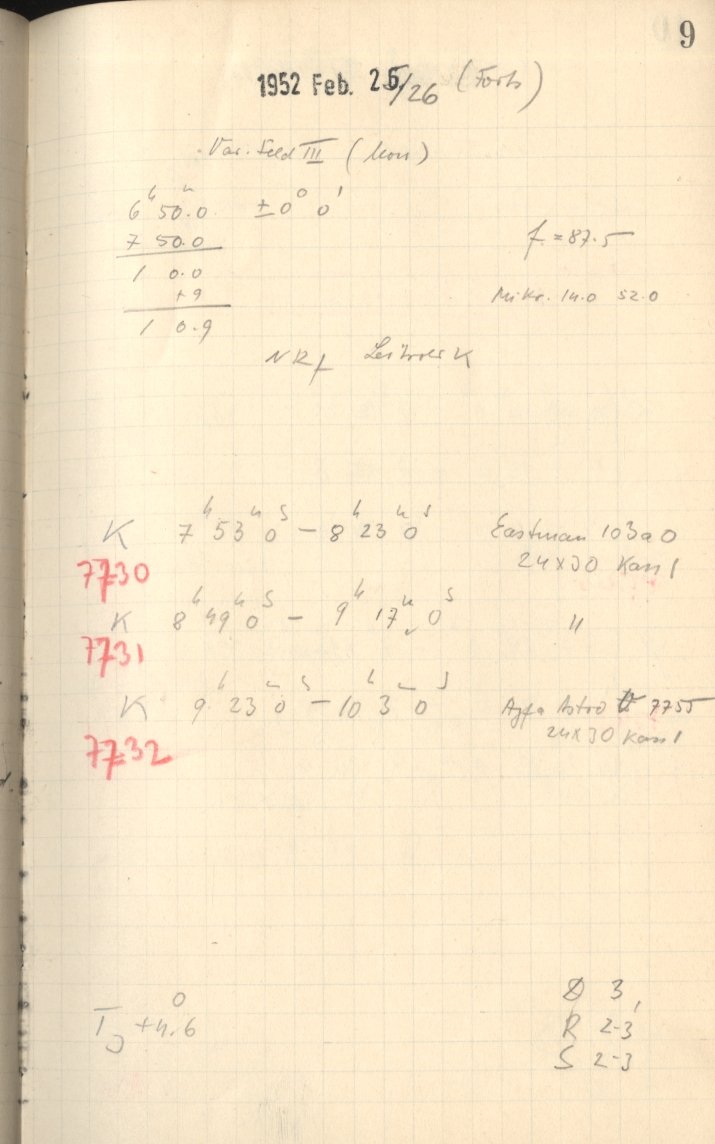 9
1952 Feb. 25/26 (Forts)
Var. Feld III (Mon)
6ʰ 50.0ᵐ ±0° 0'
7 50.0
f = 87.5
1 0.0
+9
Mikr. 14.0 52.0
1 0.9
NRf K
K 7ʰ 53ᵐ 0ˢ – 8ʰ 23ᵐ 0ˢ Eastman 103a0
24x30 Kass 1
7730
K 8ʰ 49ᵐ 0ˢ – 9ʰ 17ᵐ 0ˢ "
7731
K 9ʰ 23ᵐ 0ˢ – 10ʰ 3ᵐ 0ˢ Agfa Astro 7755
24x30 Kass 1
7732
D 3
T +4.6°
R 2-3
S 2-3